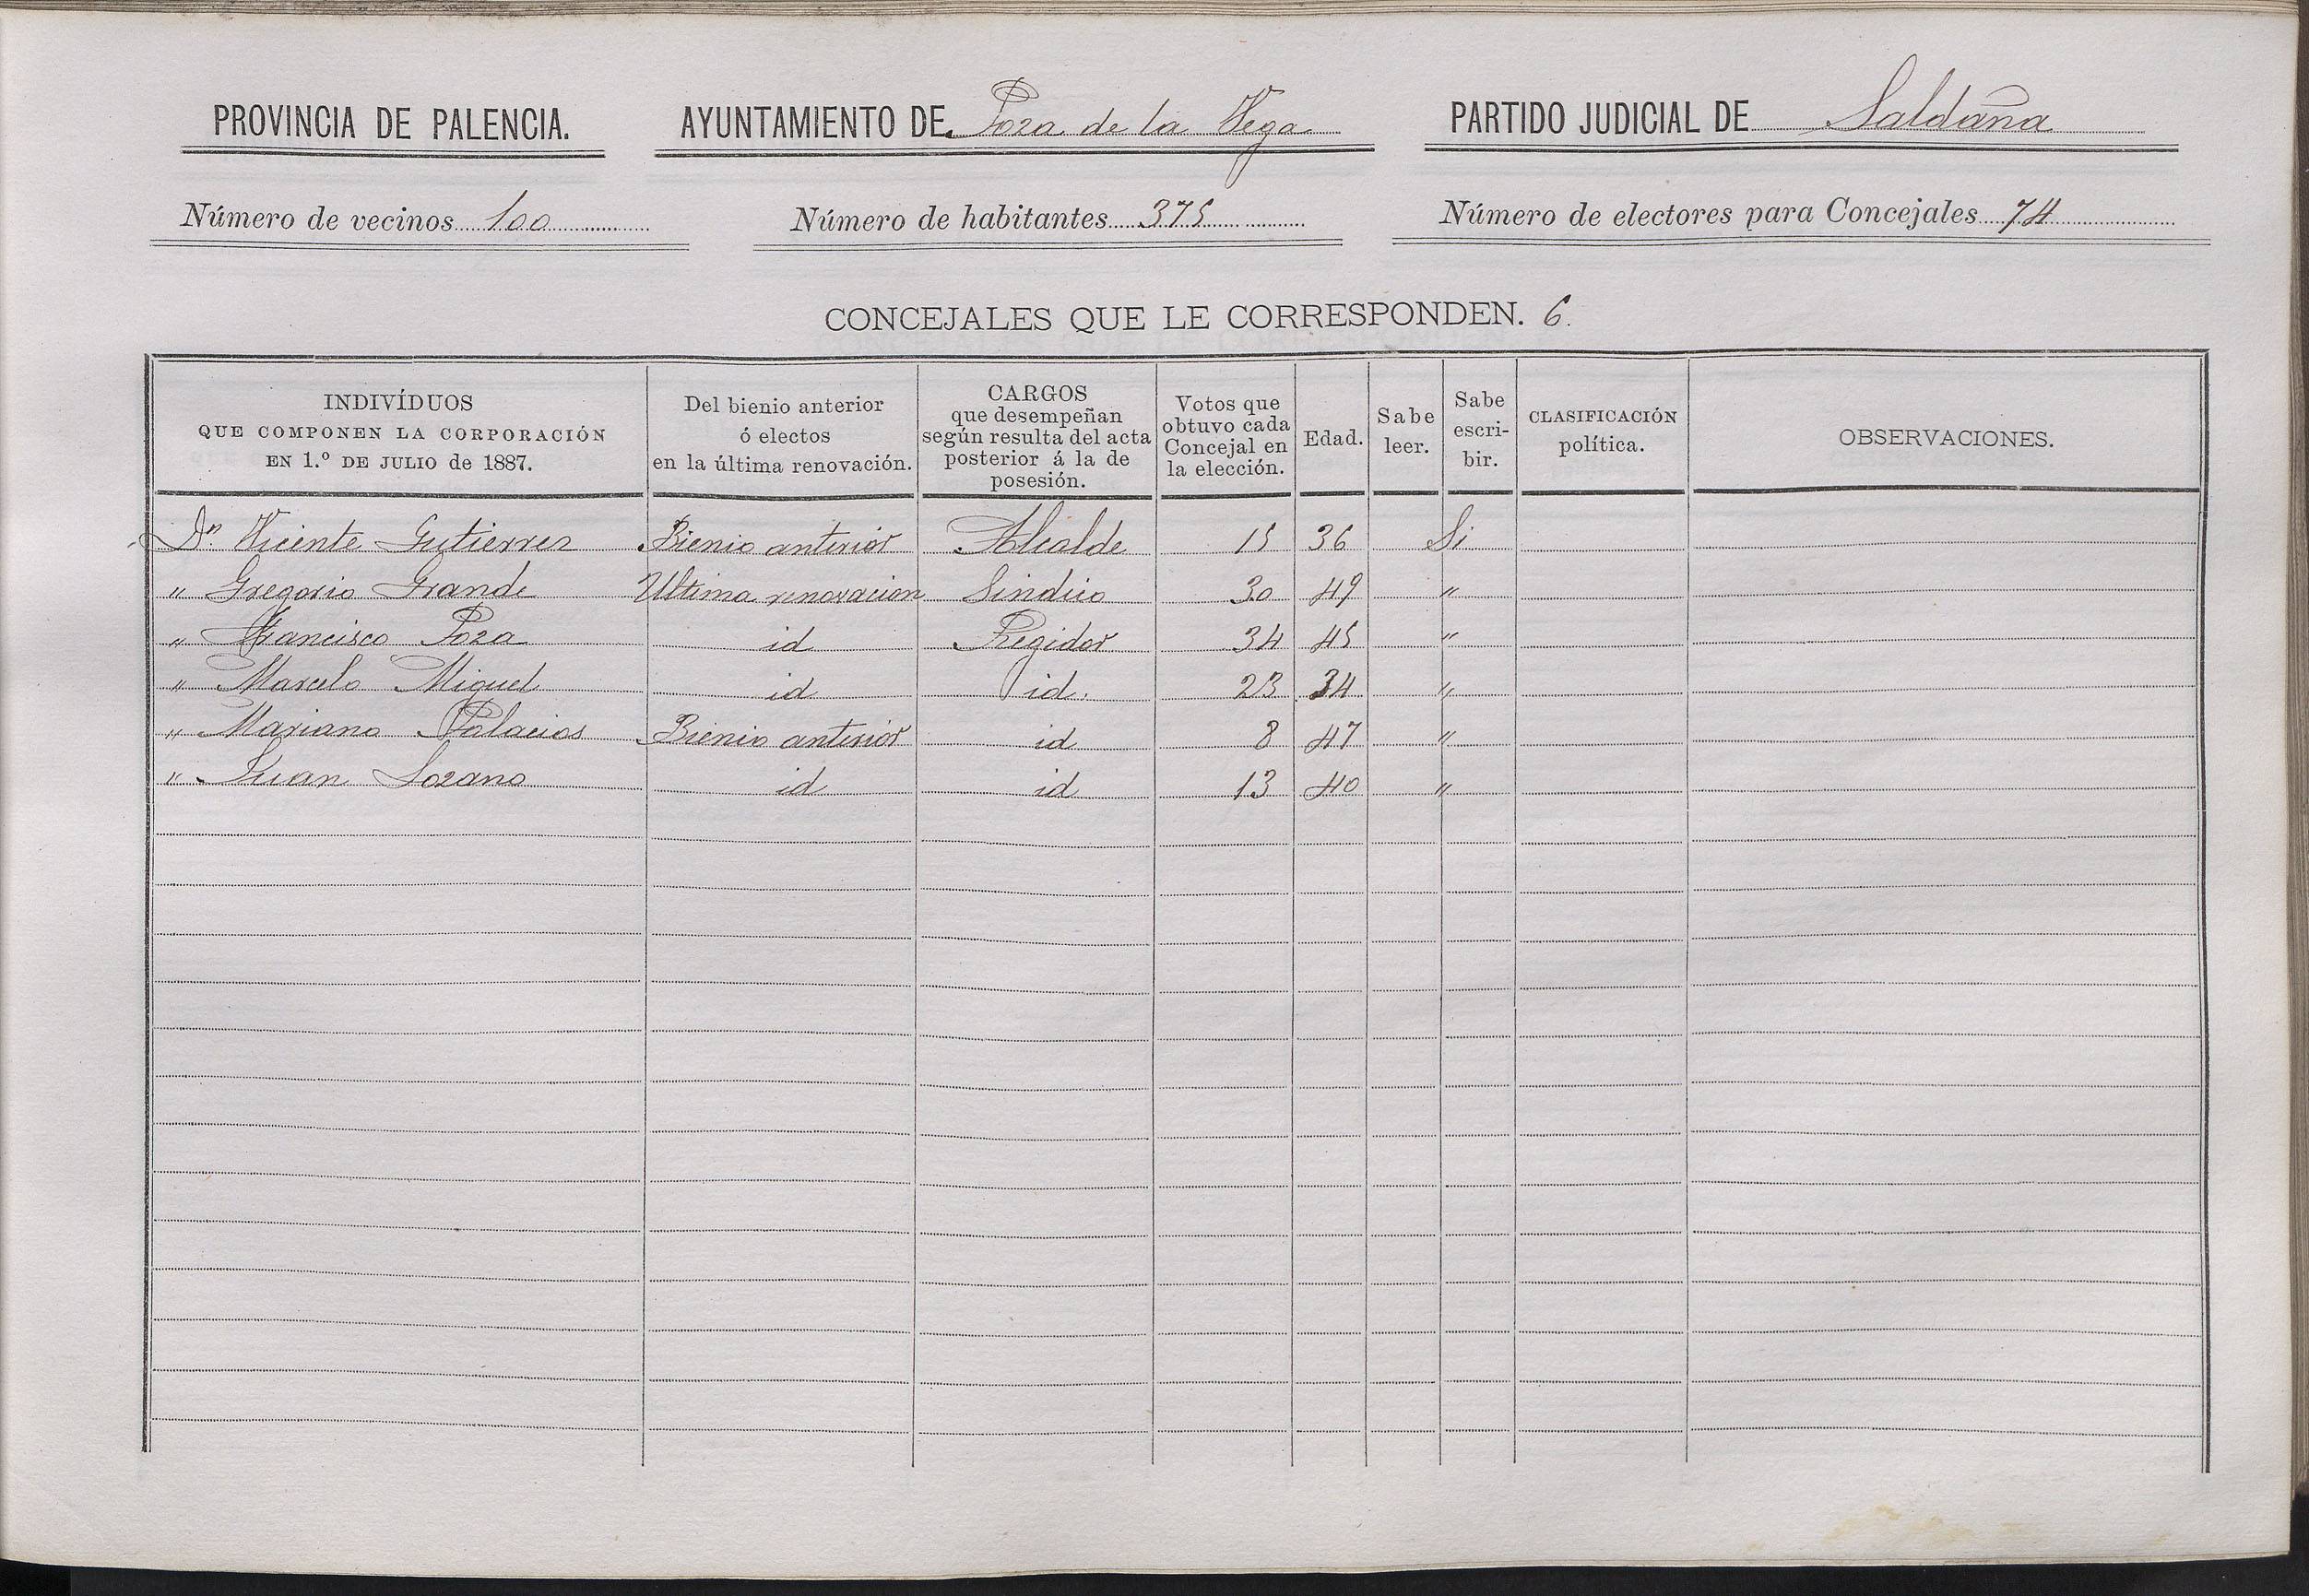 PROVINCIA DE PALENCIA. AYUNTAMIENTO DE Poza de la Vega PARTIDO JUDICIAL DE Saldaña
Número de vecinos 100 Número de habitantes 375 Número de electores para Concejales 74
CONCEJALES QUE LE CORRESPONDEN. 6.
INDIVÍDUOS
QUE COMPONEN LA CORPORACIÓN
EN 1.º DE JULIO de 1887.
Del bienio anterior
ó electos
en la última renovación.
CARGOS
que desempeñan
según resulta del acta
posterior á la de
posesión.
Votos que
obtuvo cada
Concejal en
la elección.
Edad.
Sabe
leer.
Sabe
escri-
bir.
CLASIFICACIÓN
política.
OBSERVACIONES.
Dn. Vicente Gutierrez Bienio anterior Alcalde 15 36 Si
" Gregorio Grande Ultima renovacion Sindico 30 49 "
" Francisco Poza id Regidor 34 45 "
" Marcelo Miguel id id. 23 34 "
" Mariano Palacios Bienio anterior id 8 47 "
" Juan Lozano id id 13 40 "